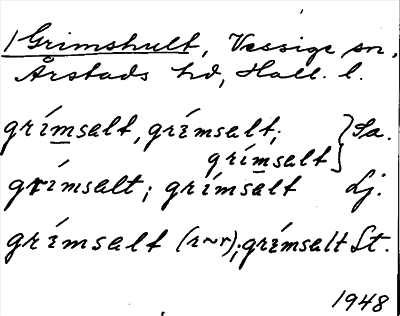 1 Grimshult, Vessige sn,
Årstads hd, Hall. l.
grímsalt, grímsalt;
grímsalt } Sa.
grímsalt; grímsalt Lj.
grímsalt (r~r); grímsalt St.
1948